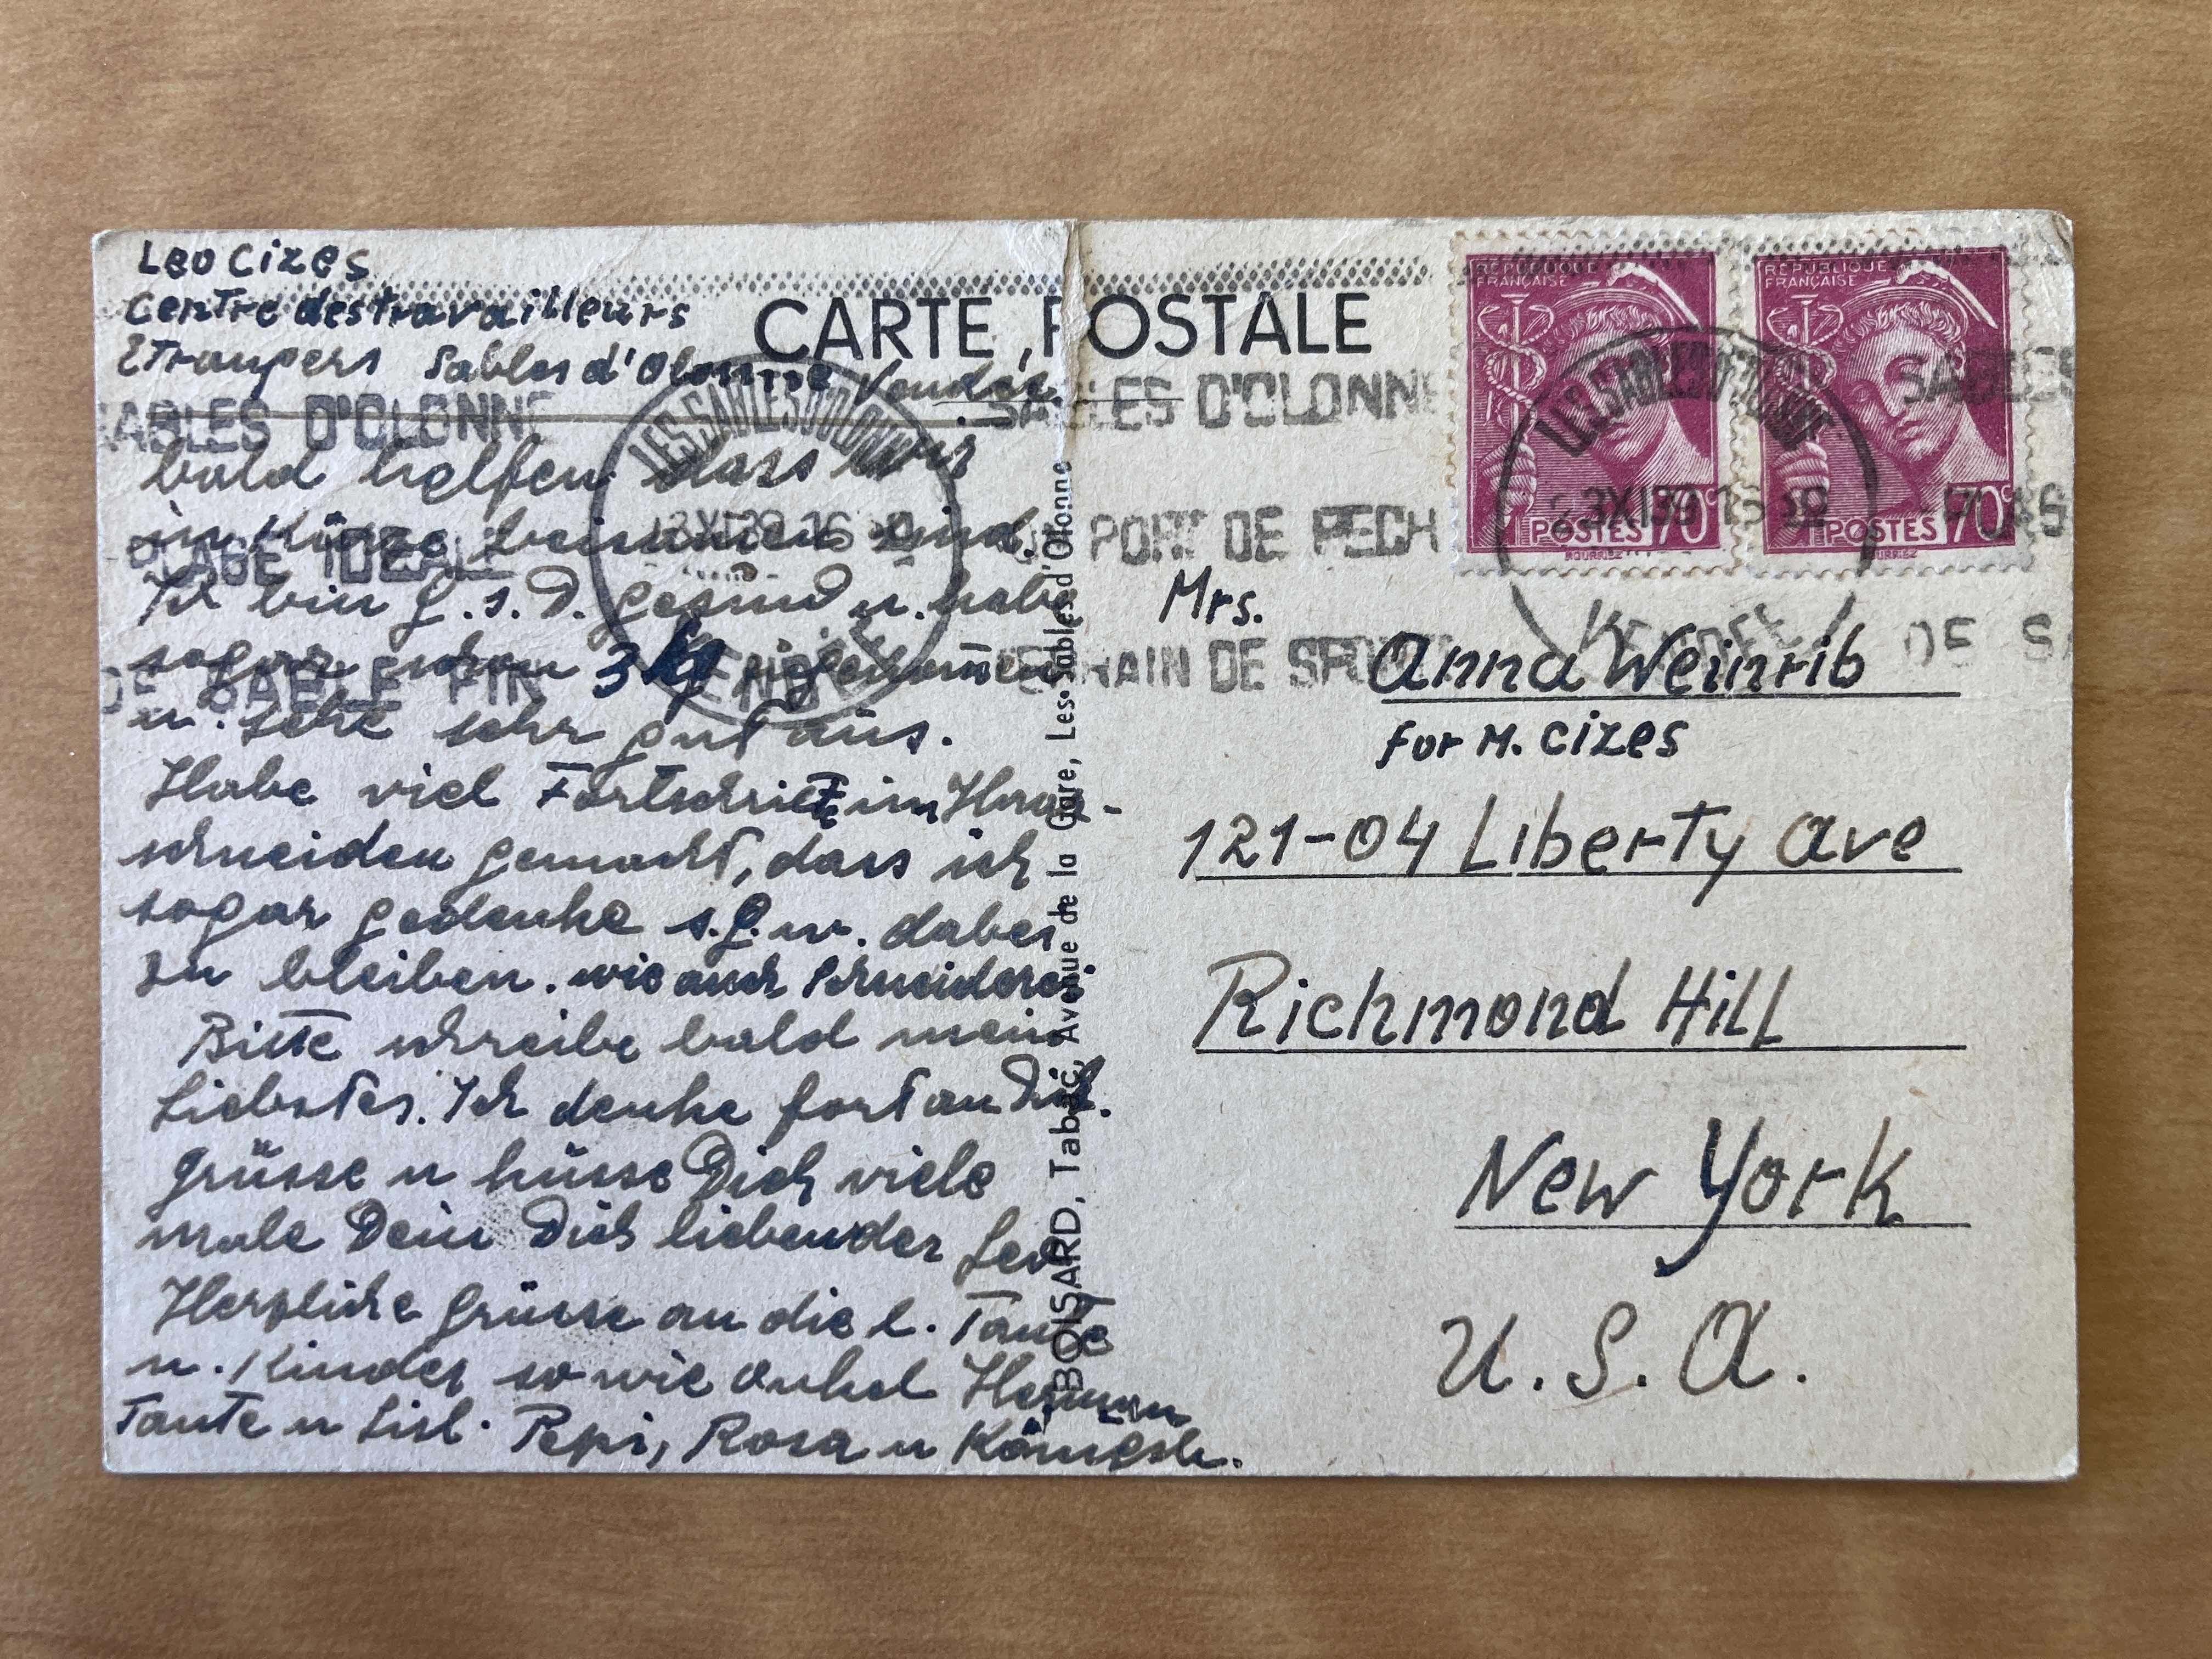 Leo Cizes
Centre des travailleurs
Etrangers Sables d'Olonne Vendée
CARTE POSTALE
bald helfen dass wir
in Kürze beisamen sind.
Ich bin G.s.D. gesund u. habe
sogar schon 3 kg zugenom̄en
u. sehe sehr gut aus.
Habe viel Fortschritte im Haar-
schneiden gemacht, dass ich
sogar gedenke s.G.w. dabei
zu bleiben. wie auch Schneiderei
Bitte schreibe bald mein
Liebstes. Ich denke fort an Dich.
Grüsse u küsse Dich viele
male Dein Dich liebender Leo
Herzliche Grüsse an die l. Tante
u. Kinder so wie Onkel Herman
Tante u Lisl. Pepi, Rosa u
BOISARD, Tabac, Avenue de la Gare, Les-Sables d'Olonne
RÉPUBLIQUE FRANÇAISE
POSTES 70c
RÉPUBLIQUE FRANÇAISE
POSTES 70c
LES SABLES D'OLONNE
VENDÉE
LES SABLES D'OLONNE
23 XI 39
VENDÉE
SABLES D'OLONNE
PLAGE IDEALE
DE SABLE FIN
SABLES D'OLONNE
PORT DE PECH
DE SPORT
SABLES
PLAG
DE SA
Mrs.
Anna Weinrib
for M. Cizes
121-04 Liberty Ave
Richmond Hill
New York
U.S.A.